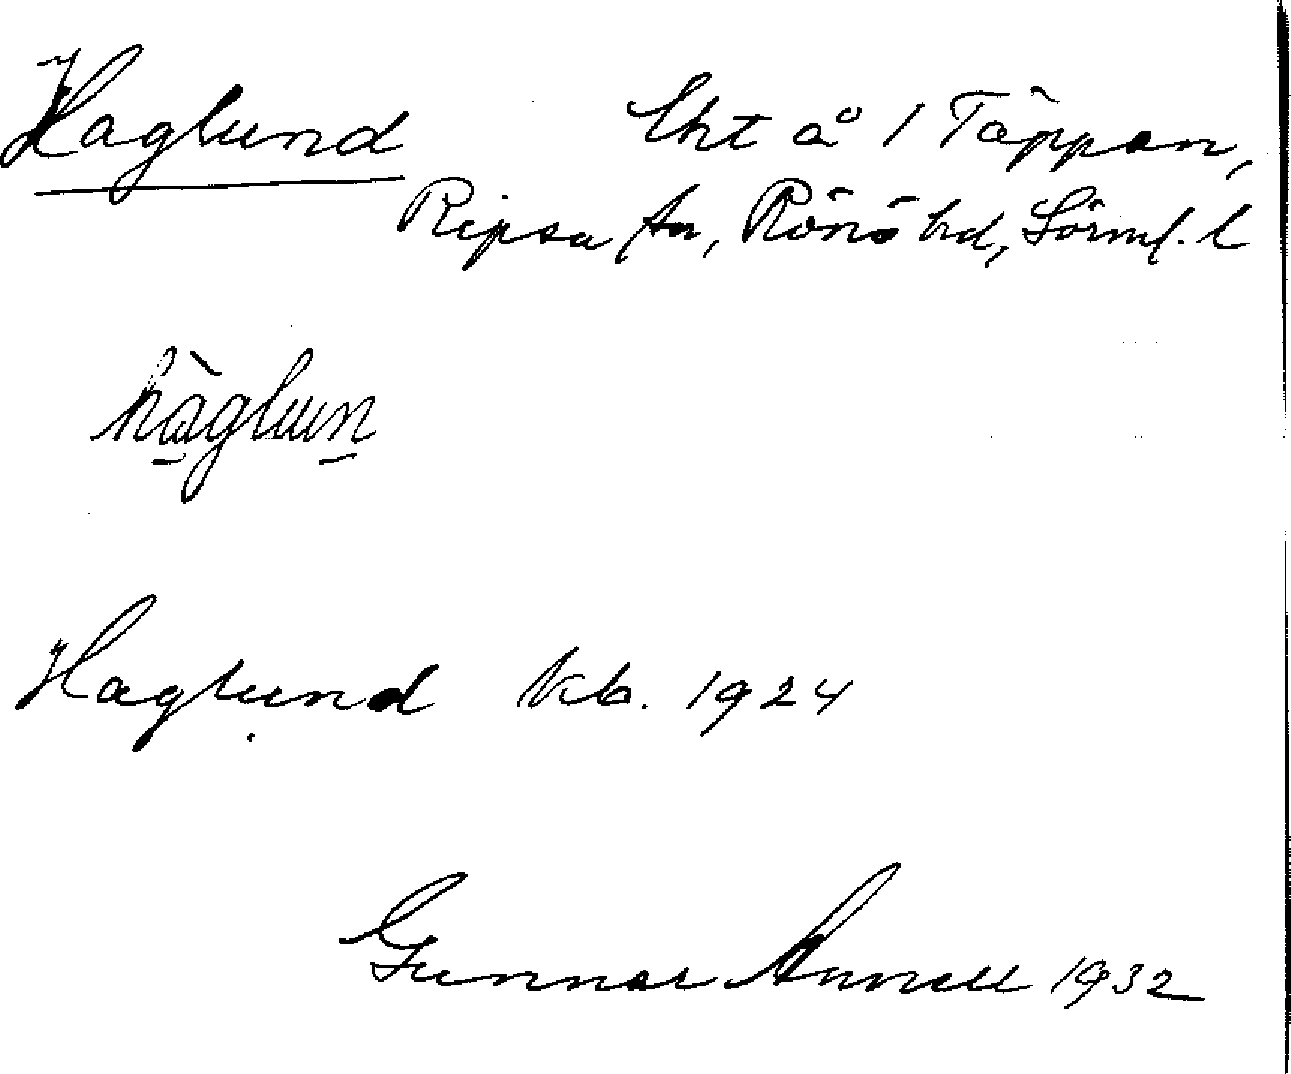 Haglund lht å 1 Täppan,
Ripsa sn, Rönö hd, Sörml. l
hàglun
Haglund kb. 1924
Gunnar Annell 1932